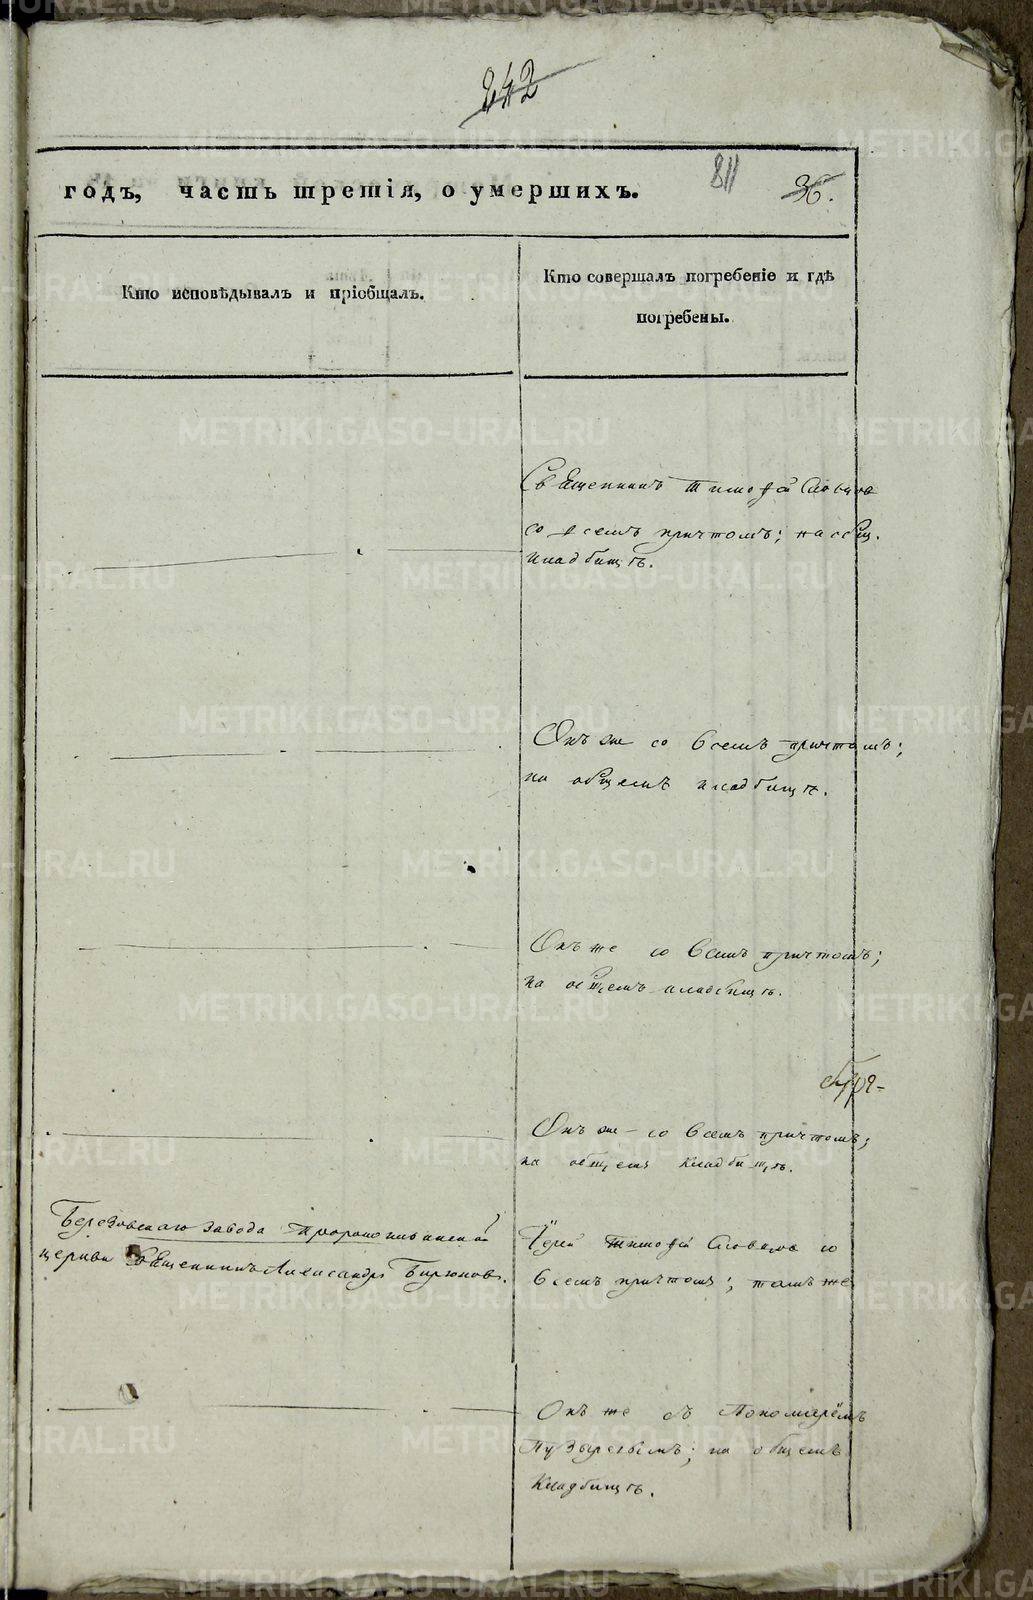 242
годъ, часть третія, о умершихъ.
811
36.
Кто исповѣдывалъ и пріобщалъ.
Кто совершалъ погребеніе и гдѣ
погребены.
Священникъ Тимофей
со всемъ причтомъ; на общ.
кладбищѣ.
Онъ же со всемъ причтомъ;
на общемъ кладбищѣ.
Онъ же со всемъ причтомъ;
на общемъ кладбищѣ.
Онъ же со всемъ причтомъ;
на общемъ кладбищѣ.
Березовскаго завода Пророкоильинской
церкви Священникъ Александръ Бирюковъ.
Іерей Тимофей со
всемъ причтомъ; тамъ же
Онъ же съ Пономарёмъ
Пузыревымъ; на общемъ
кладбищѣ.
METRIKI.GASO-URAL.RU